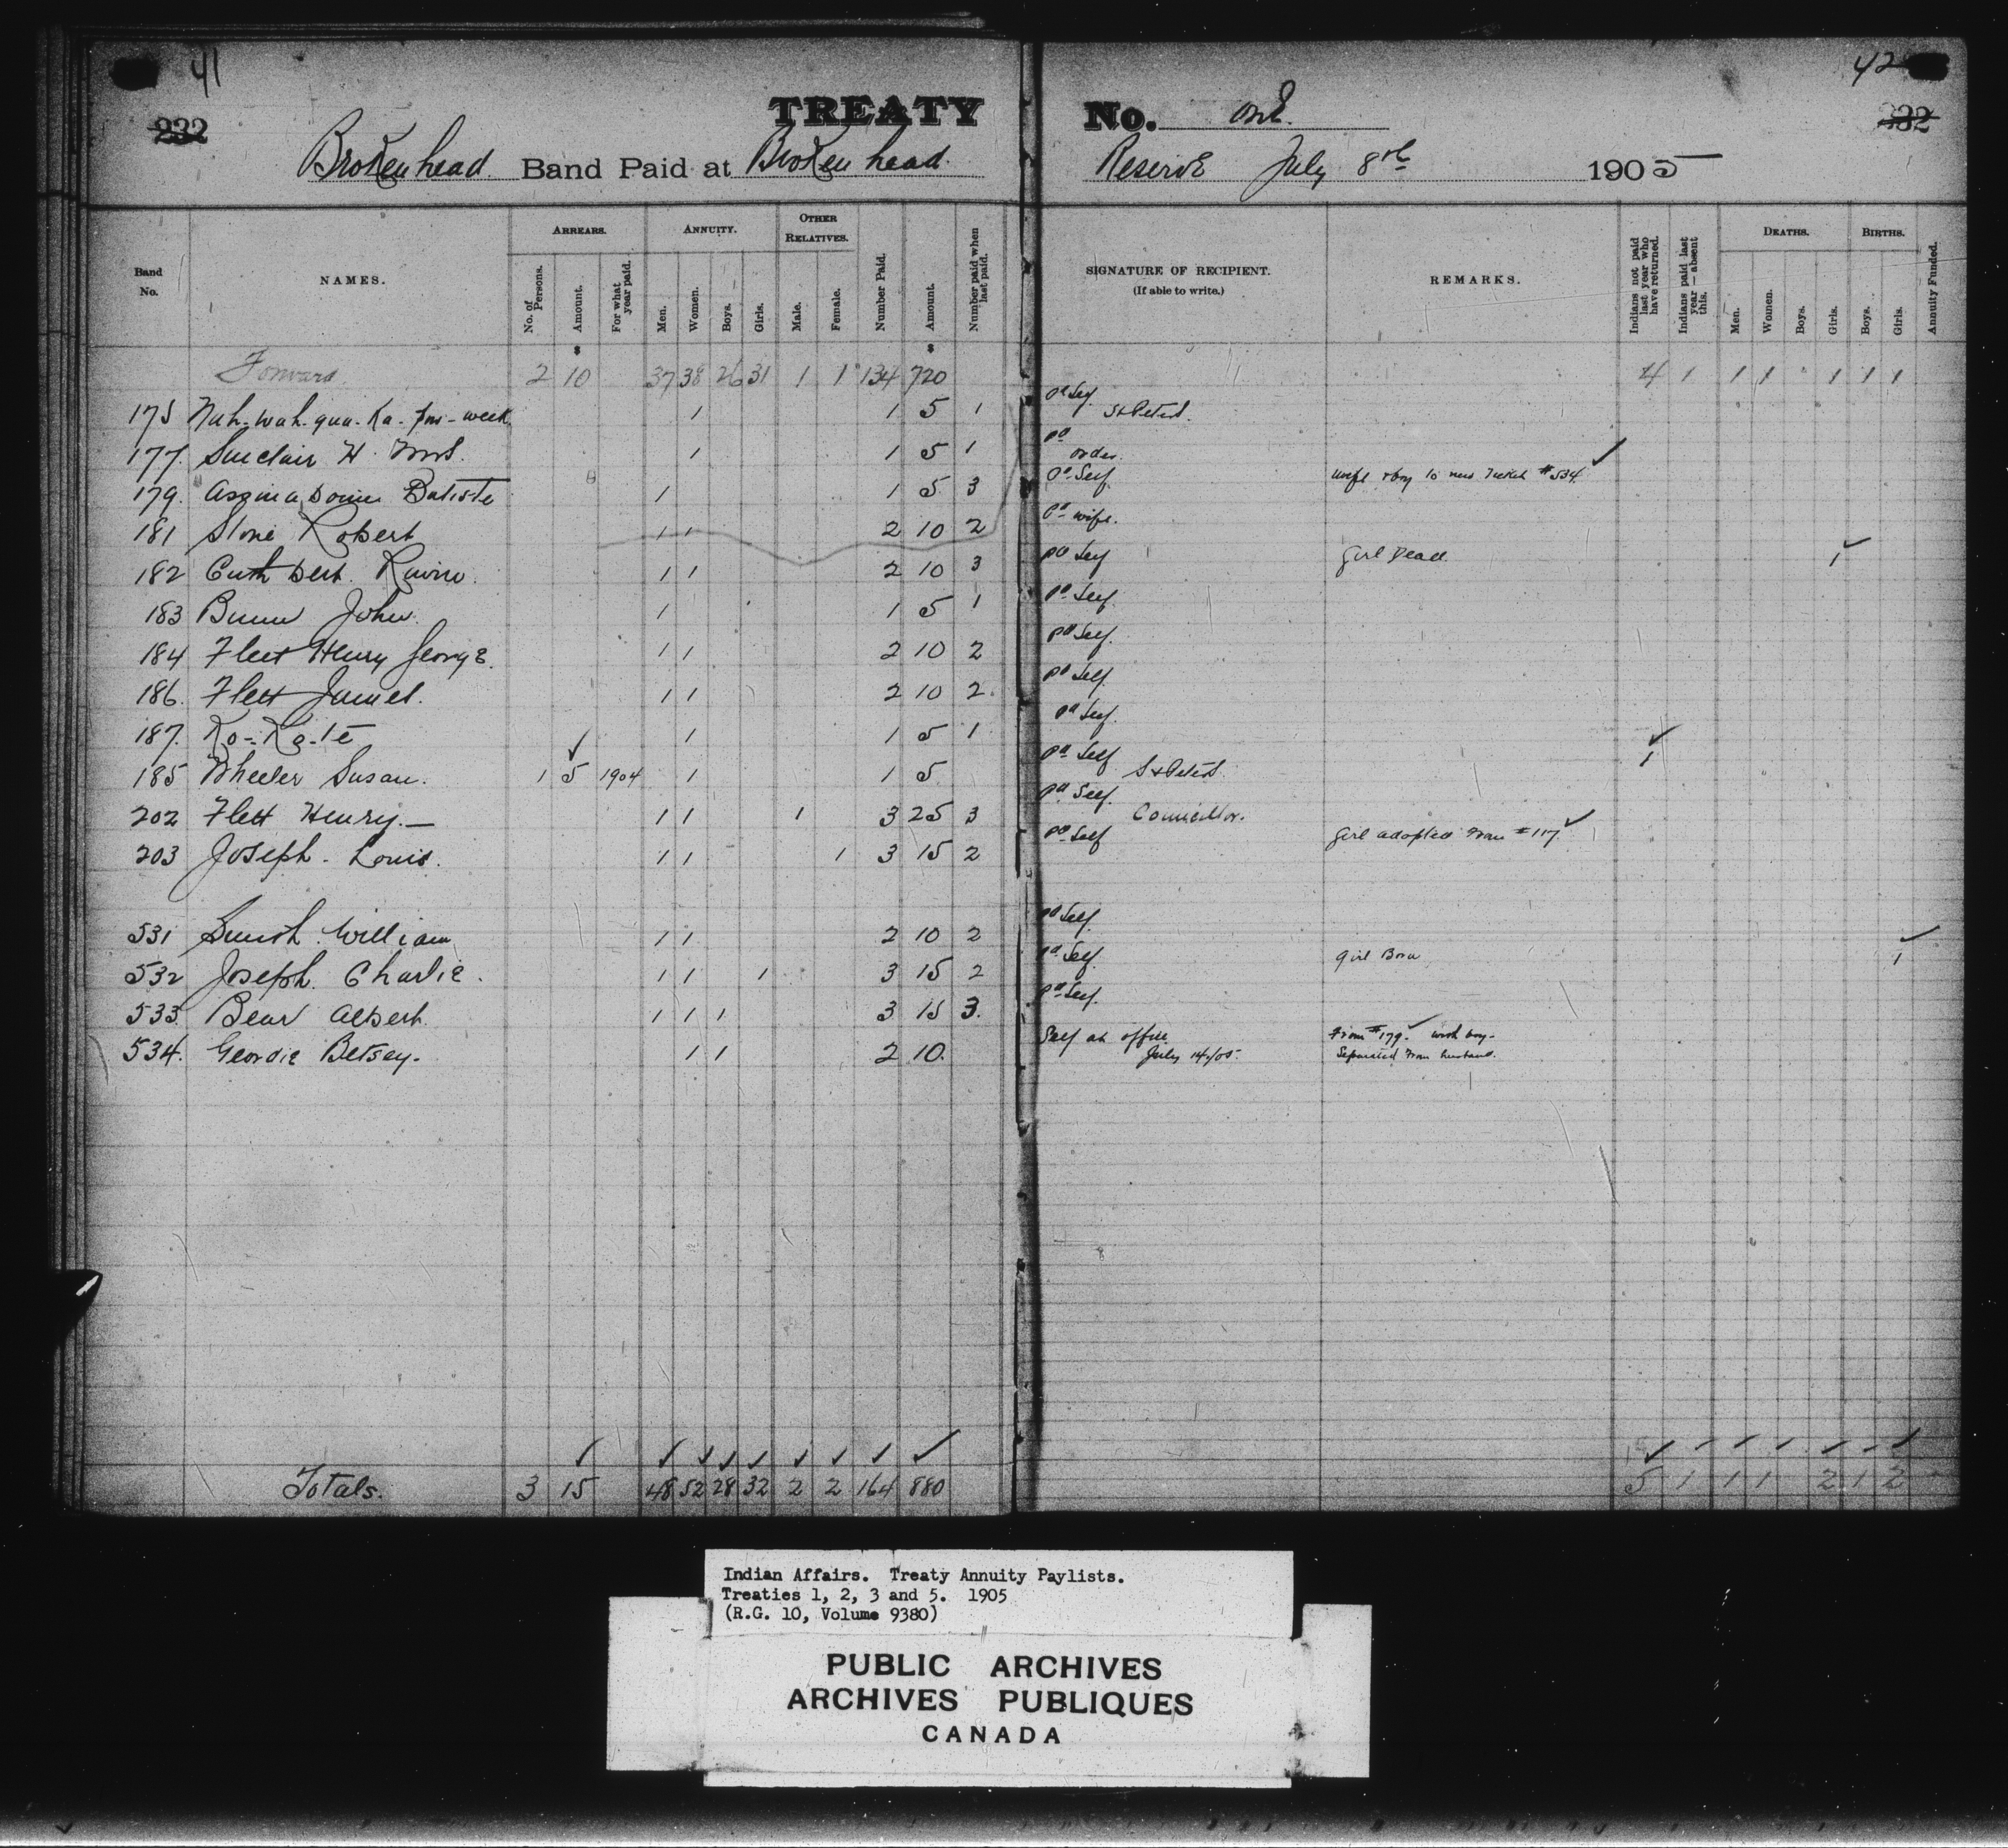 41
42
TREATY No. One
232
232
Brokenhead Band Paid at Brokenhead Reserve July 8th 1905
Band No.
NAMES.
ARREARS.
No. of Persons.
Amount.
For what year paid.
ANNUITY.
Men.
Women.
Boys.
Girls.
OTHER RELATIVES.
Male.
Female.
Number Paid.
Amount.
Number paid when last paid.
SIGNATURE OF RECIPIENT.
(If able to write.)
REMARKS.
Indians not paid last year who have returned.
Indians paid last year—absent this.
DEATHS.
Men.
Women.
Boys.
Girls.
BIRTHS.
Boys.
Girls.
Annuity Funded.
$ $
Forward 2 10 37 38 26 31 1 1 134 720 4 1 1 1 1 1 1
175 Nah-wah-qua-Ka- -week 1 1 5 1 Pd Self St Peters
177 Sinclair H. Mrs. 1 1 5 1 Pd order.
179. Batiste 1 1 5 3 Pd Self wife & boy to new Ticket #534 ✓
181 Robert 1 1 2 10 2 Pd wife.
182 Cuthbert 1 1 2 10 3 Pd Self Girl Dead 1 ✓
183 Bunn John 1 1 5 1 Pd Self.
184 Flett Henry George. 1 1 2 10 2 Pd Self.
186. Flett James. 1 1 2 10 2. Pd Self.
187. Ko-Ka-te 1 1 5 1 Pd Self.
185 Wheeler Susan. 1 5 ✓ 1904 1 1 5 Pd Self St Peters 1 ✓
202 Flett Henry.— 1 1 1 3 25 3 Pd Self. Councillor.
203 Joseph. Louis. 1 1 1 3 15 2 Pd Self Girl adopted from #117 ✓
531 William 1 1 2 10 2 Pd Self.
532 Joseph. Charlie. 1 1 1 3 15 2 Pd Self. Girl Born 1 ✓
533 Bear Albert. 1 1 1 3 15 3. Pd Self.
534. Geordie Betsey. 1 1 2 10. Self at office July 14/05. From #179 ✓ with boy- Separated from husband.
Totals. 3 15 48 52 28 32 2 2 164 880 5 1 1 1 2 1 2
Indian Affairs. Treaty Annuity Paylists.
Treaties 1, 2, 3 and 5. 1905
(R.G. 10, Volume 9380)
PUBLIC ARCHIVES
ARCHIVES PUBLIQUES
CANADA